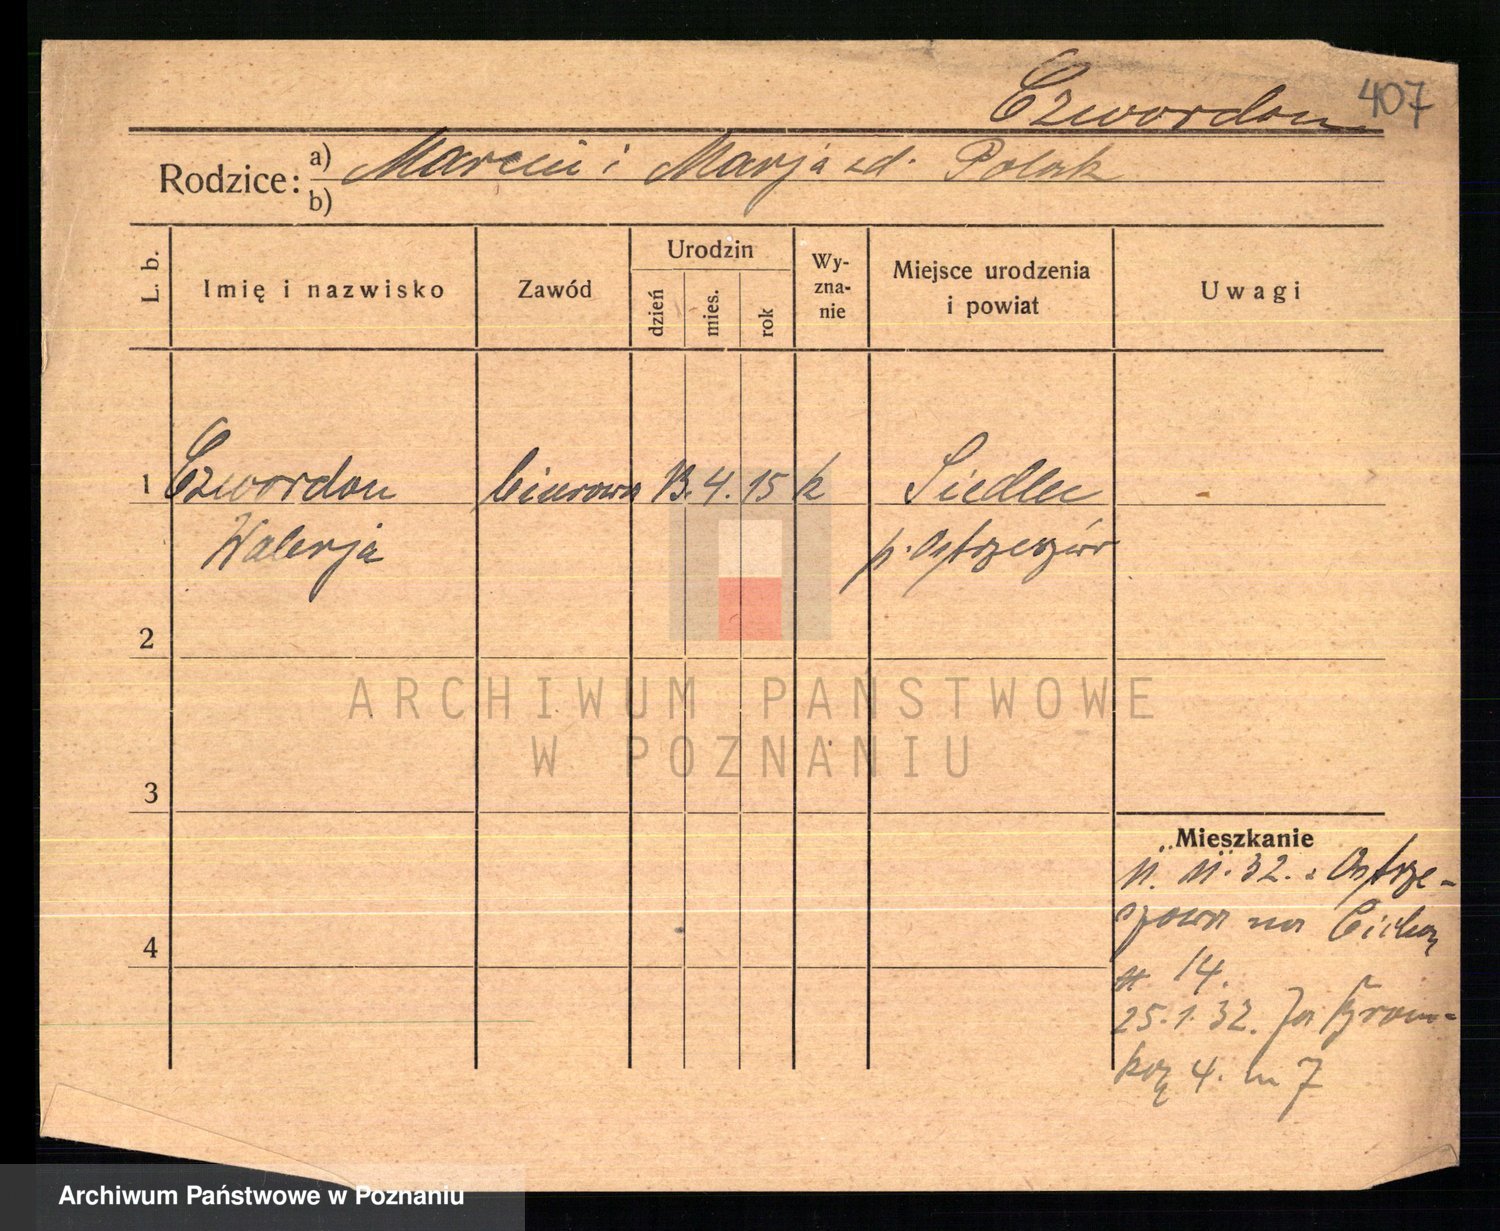 Czwordon 407
Rodzice: a) Marcin i Marja zd. Polak
b)
L. b.
Imię i nazwisko
Zawód
Urodzin
dzień
mies.
rok
Wy-
zna-
nie
Miejsce urodzenia
i powiat
Uwagi
1 Czwordon biurowa 13. 4. 15 k Siedlec
Walerja p. Ostrzeszów
2
3
4
Mieszkanie
11. 11. 32. z Ostrze-
szowa na Cichą
14.
25. 1. 32. Za Bram-
ką 4. m 7
ARCHIWUM PAŃSTWOWE
W POZNANIU
Archiwum Państwowe w Poznaniu